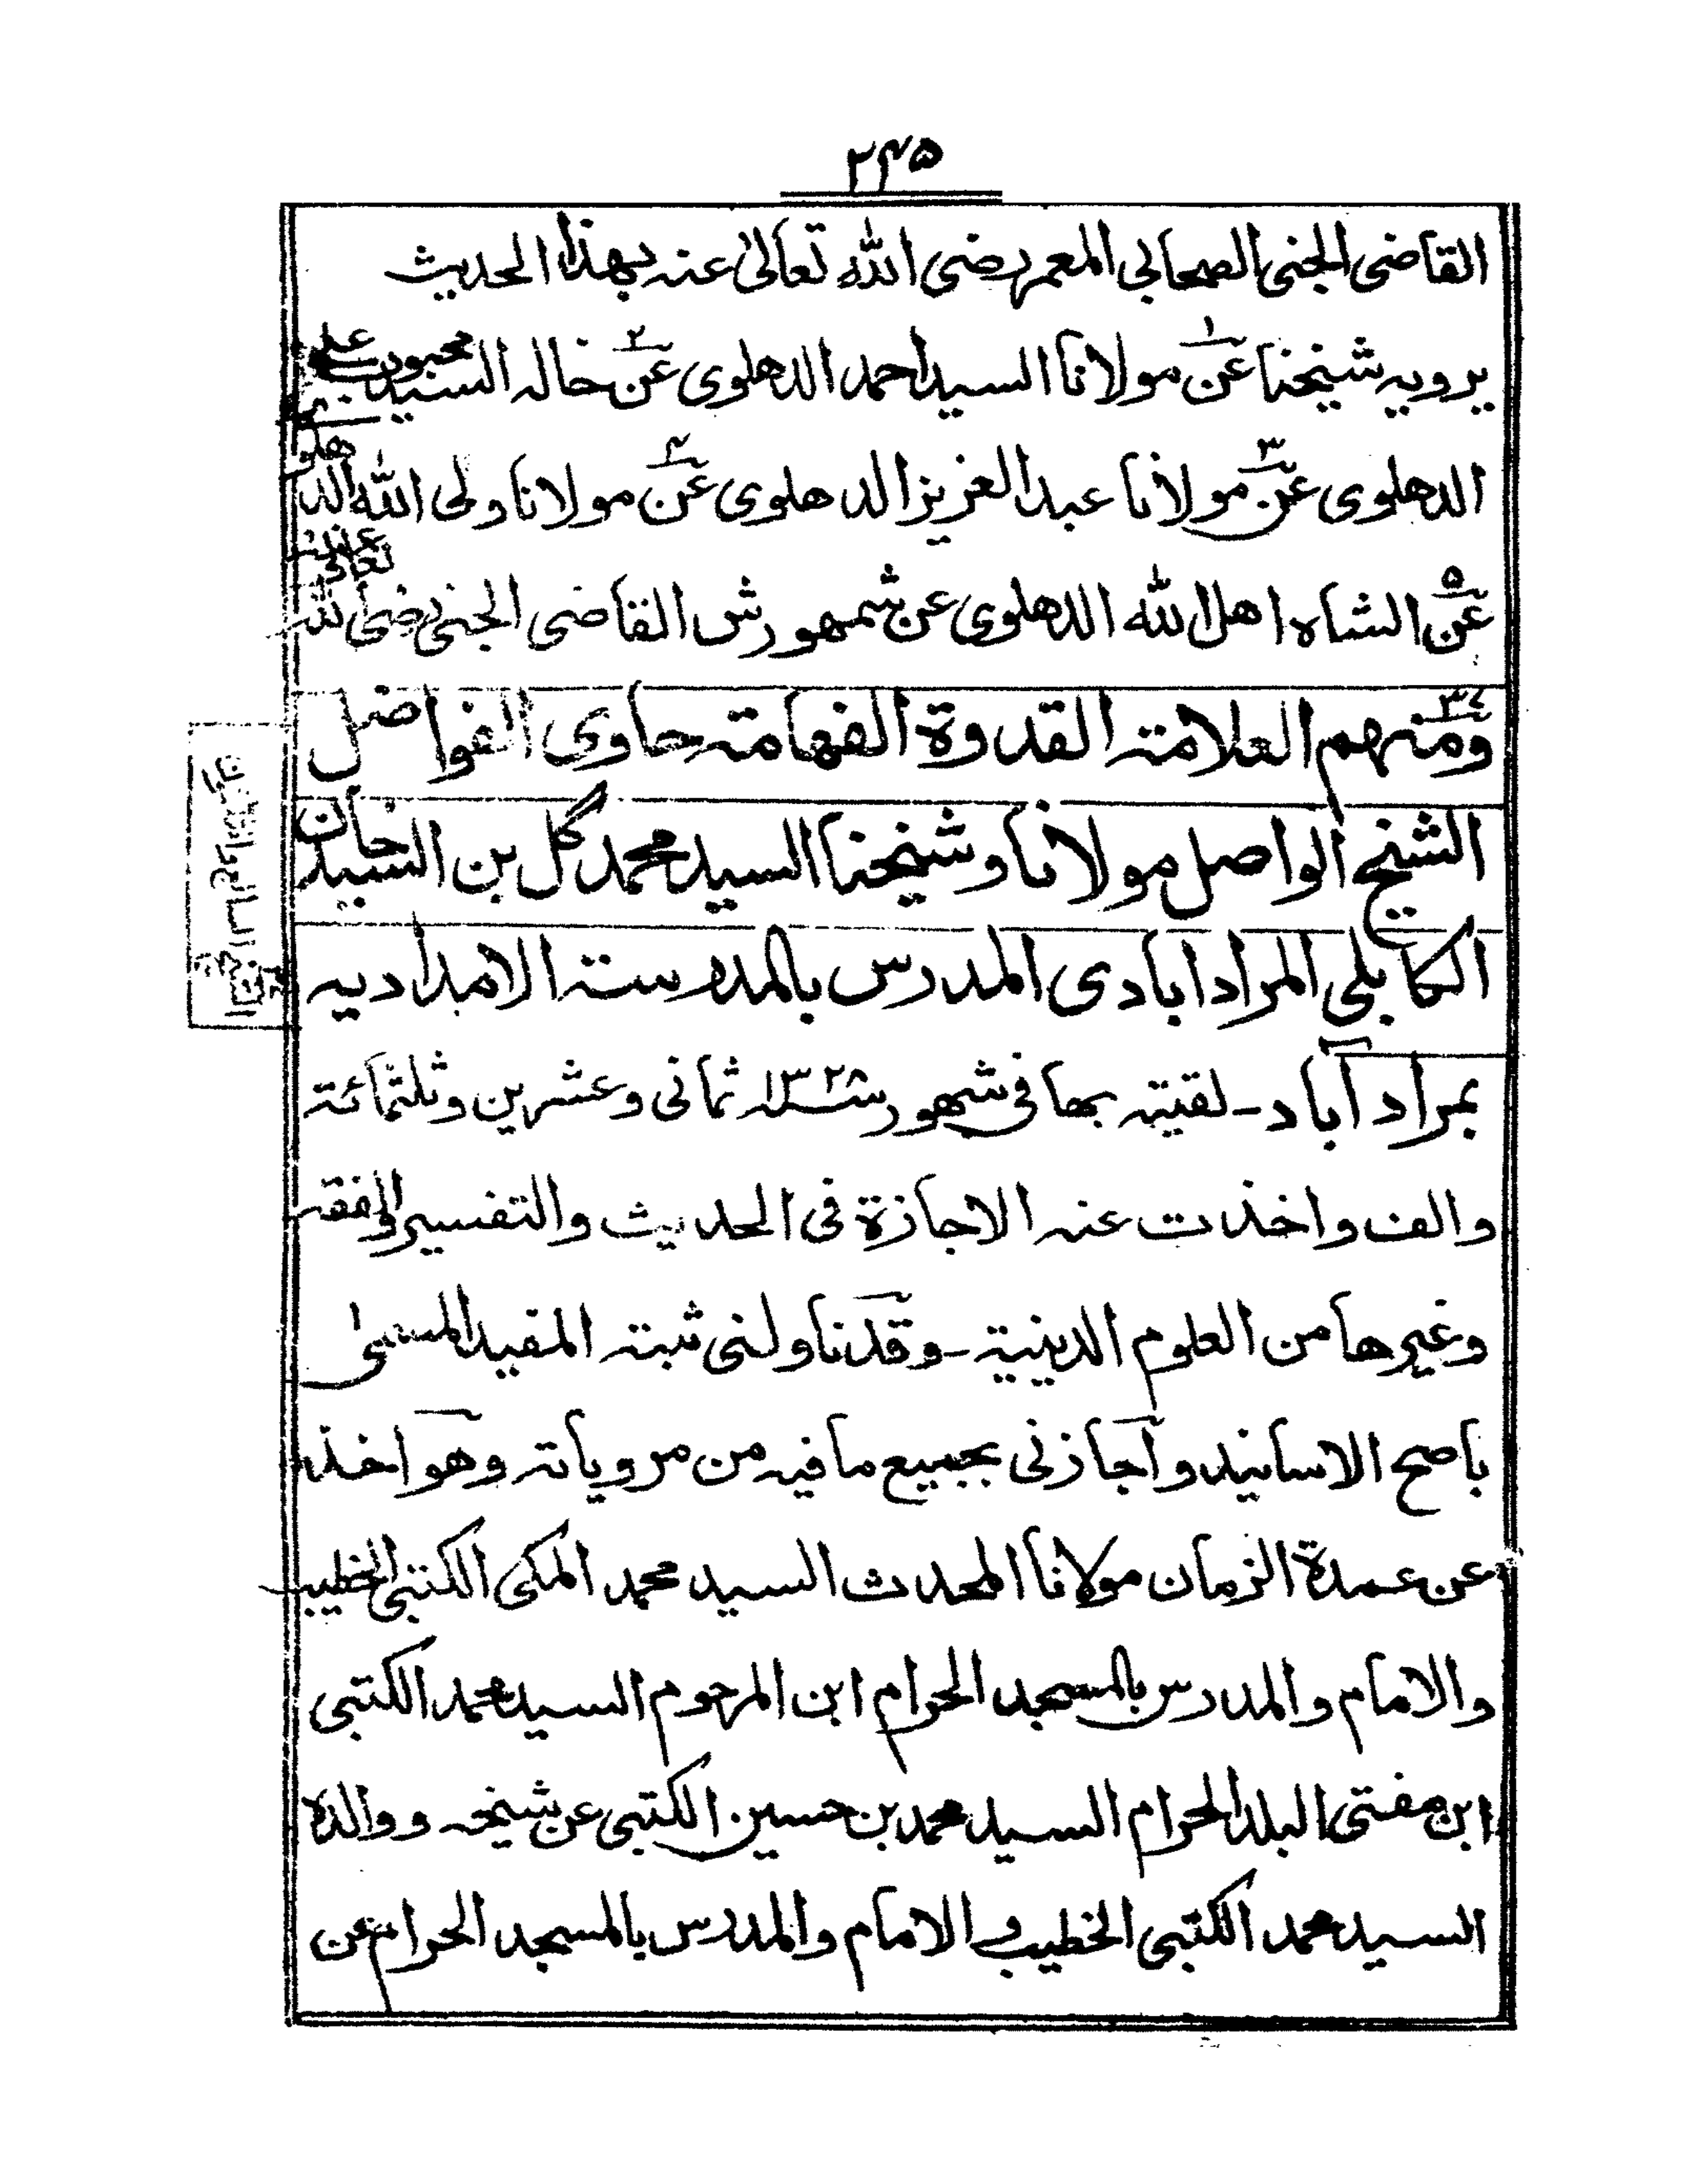 ۲۴۵
القاضی الجنی الصحابی المعمر رضی الله تعالیٰ عنه بهذا الحدیث
یرویه شیخنا عن۱ مولانا السید احمد الدهلوی عن۲ خاله السید محبوب علی
الدهلوی عن۳ مولانا عبد العزیز الدهلوی عن۴ مولانا ولی الله الدهلوی
عن۵ الشاه اهل الله الدهلوی عن شمهورش القاضی الجنی رضی الله تعالیٰ عنه
ومنهم۳۴ العلامة القدوة الفهامة حاوی الفواضل
الشیخ الواصل مولانا وشیخنا السید محمد گل بن السید خان
الکابلی المرادابادی المدرس بالمدرسة الامدادیه
بمرادآباد - لقیته بها فی شهور سنة ۱۳۲۸ ثمانی وعشرین وثلثمائة
والف واخذت عنه الاجازة فی الحدیث والتفسیر والفقه
وغیرها من العلوم الدینیة - وقد ناولنی ثبته المفید المسمیٰ
باصح الاسانید واجازنی بجمیع ما فیه من مرویاته وهو اخذ
عن عمدة الزمان مولانا المحدث السید محمد المکی الکتبی الخطیب
والامام والمدرس بالمسجد الحرام ابن المرحوم السید محمد الکتبی
ابن مفتی البلد الحرام السید محمد بن حسین الکتبی عن شیخه ووالده
السید محمد الکتبی الخطیب والامام والمدرس بالمسجد الحرام عن
۳۴ الشیخ الرابع والثلاثون